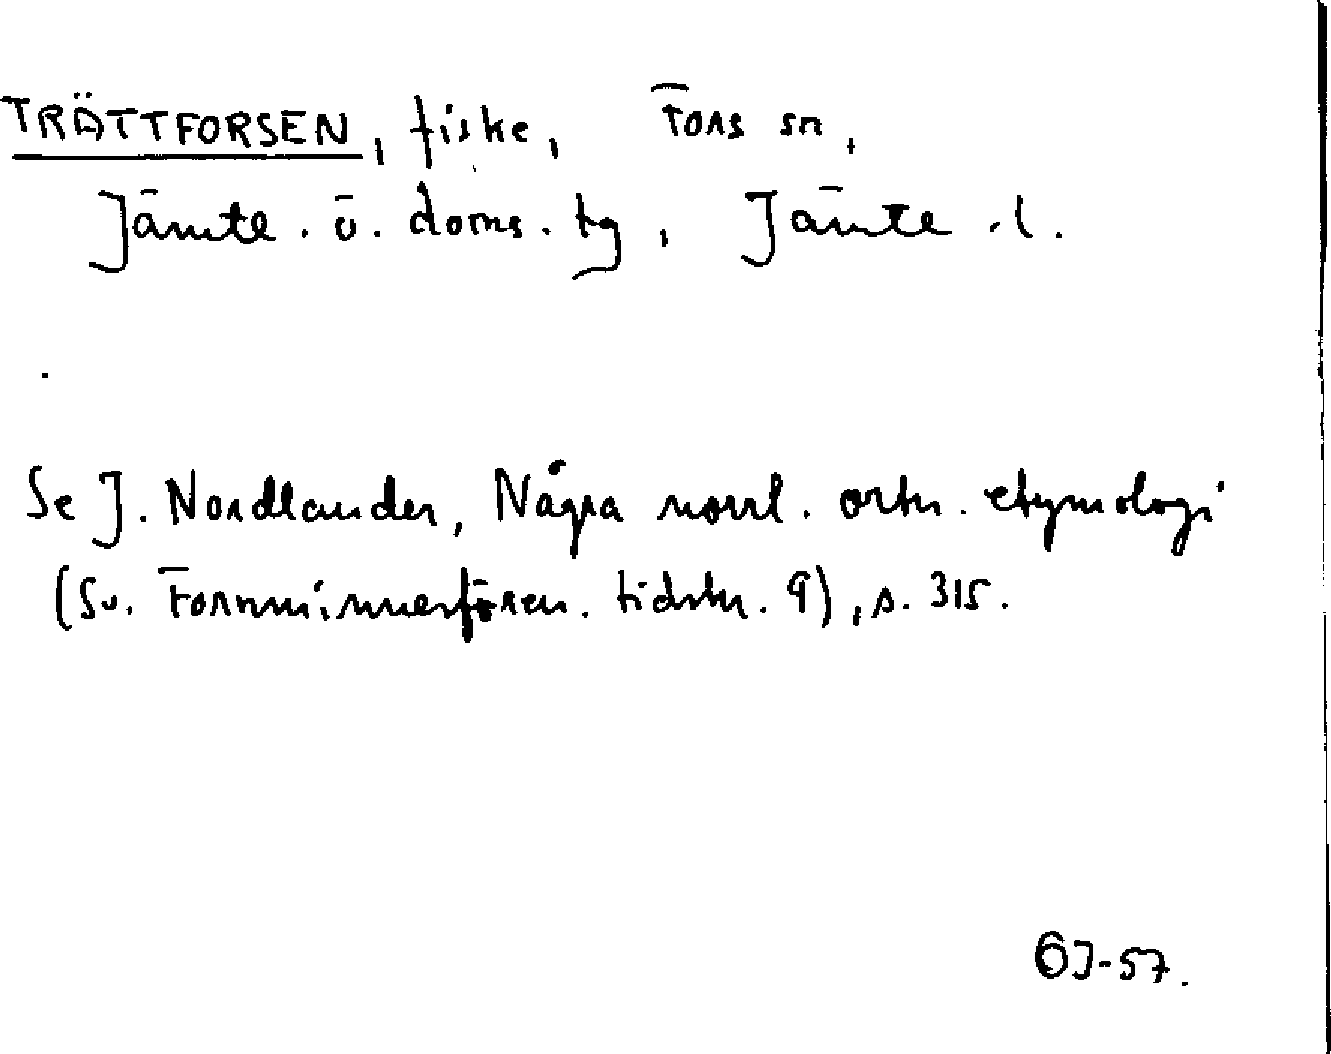 TRÄTTFORSEN, fiske, Fors sn,
Jämtl. ö. doms. hg, Jämtl. l.
Se J. Nordlander, Några norrl. ortn. etymologi
(Sv. Fornminnesfören. tidskr. 9), s. 315.
ÖJ-57.